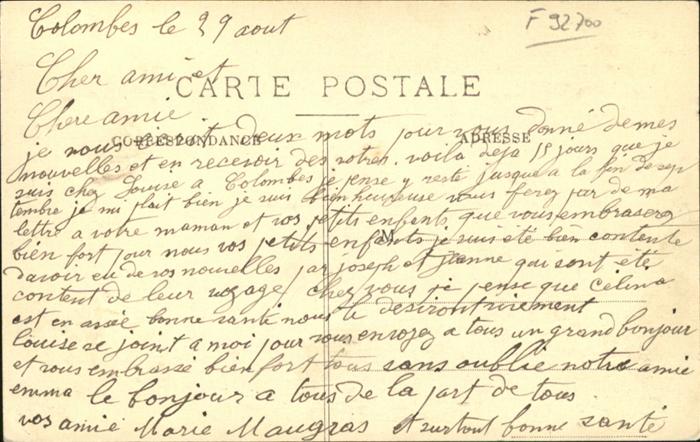 Colombes le 29 aout
F 92700
Cher ami et
CARTE POSTALE
Chere amie
CORRESPONDANCE
ADRESSE
je vous ecrit deux mots pour vous donné de mes
nouvelles et en recevoir des votres. voila deja 15 jours que je
suis chez Louise a Colombes je pense y resté jusque a la fin de sep
tembre je mi plait bien je suis bien heureuse vous ferez par de ma
lettre a votre maman et vos petits enfants que vous embraserez
bien fort pour nous vos petits enfants je suis été bien contente
davoir eu de vos nouvelles par joseph et jeanne qui sont été
content de leur voyage chez vous je pense que Célina
est en assée bonne santé nous le desiront vivement
Louise se joint a moi pour vous envoyez a tous un grand bonjour
et vous embrassé bien fort tous sans oublié notre amie
emma le bonjour a tous de la part de tous
vos amie Marie Maugras et surtout bonne santé